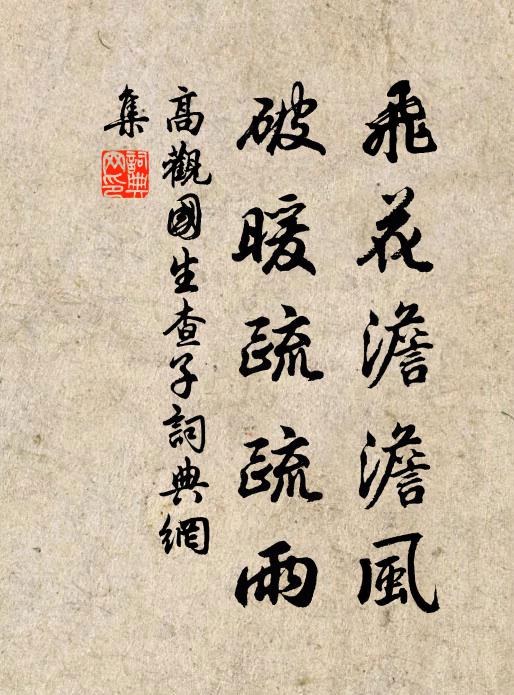 飛花澹澹風
破暖疏疏雨
高觀國生查子詞典網
集
詞典
网印